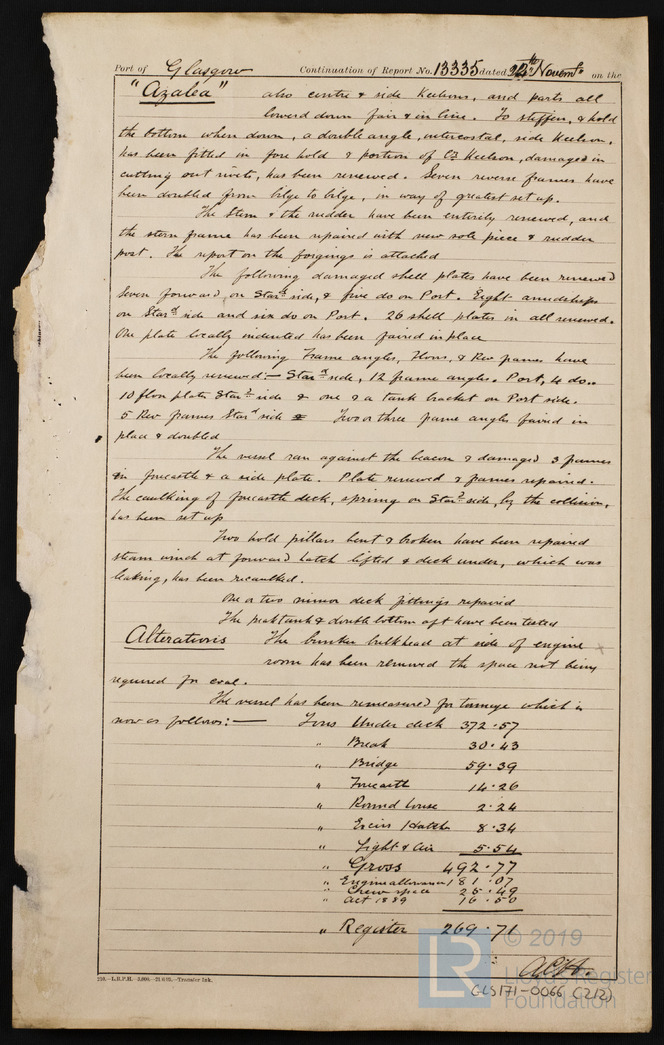 Port of Glasgow Continuation of Report No. 13335 dated 22th Novemr on the
"Azalea" also centre & side Keelsons, and parts all
lowered down fair & in line. To stiffen, & hold
the bottom when down, a double angle, intercostal, side Keelson,
has been fitted in fore hold & portion of Keelson, damaged in
cutting out rivets, has been renewed. Seven reverse frames have
been doubled from bilge to bilge, in way of greatest set up.
The Stem & the rudder have been entirely renewed, and
the stern frame has been repaired with new sole piece & rudder
post. The report on the forgings is attached
The following damaged shell plates have been renewed
Seven forward, on Stard side, & five do on Port. Eight amidships
on Stard side and six do on Port. 26 shell plates in all renewed.
One plate locally indented has been faired in place
The following Frame angles, floors, & Rev frames have
been locally renewed:— Stard side, 12 frame angles. Port, 4 do..
10 floor plates Stard side & one & a tank bracket on Port side.
5 Rev frames Stard side Two or three frame angles faired in
place & doubled
The vessel ran against the beacon & damaged 3 frames
in forecastle & a side plate. Plate renewed & frames repaired.
The caulking of forecastle deck, sprung on Stard side, by the collision,
has been set up
Two hold pillars bent & broken have been repaired
steam winch at forward hatch lifted & deck under, which was
leaking, has been recaulked.
One or two minor deck fittings repaired
The peak tank & double bottom aft have been tested
Alterations The bunker bulkhead at side of engine
room has been removed the space not being
required for coal.
The vessel has been remeasured for tonnage which is
now as follows:— Tons Under deck 372.57
" Break 30.43
" Bridge 59.39
" Forecastle 14.26
" Round house 2.24
" Excess Hatch 8.34
" Light & Air 5.54
" Gross 492.77
" Engine allowance 181.07
" Crew space 25.49
" Act 1889 16.50
" Register 269.71
210.—L.R.P.H.—3,000.—21/6/05.—Transfer Ink.
© 2019
LR
Lloyd's Register
Foundation
GLS171-0066 (2/2)